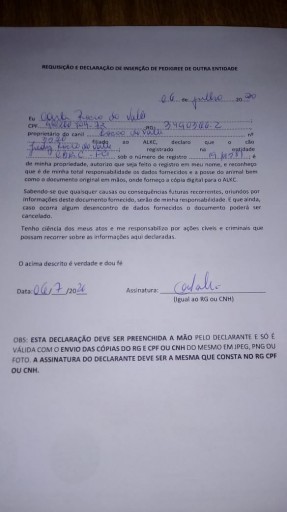 REQUISIÇÃO E DECLARAÇÃO DE INSERÇÃO DE PEDIGREE DE OUTRA ENTIDADE
06 de julho de 20
Eu
CPF RG
proprietário do canil nº
filiado ao ALKC, declaro que o cão
registrado na entidade
sob o número de registro é
de minha propriedade, autorizo que seja feito o registro em meu nome, e reconheço
que é de minha total responsabilidade os dados fornecidos e a posse do animal bem
como o documento original em mãos, onde forneço a cópia digital para o ALKC.
Sabendo-se que quaisquer causas ou consequências futuras recorrentes, oriundos por
informações deste documento fornecido, serão de minha responsabilidade. E que ainda,
caso ocorra algum desencontro de dados fornecidos o documento poderá ser
cancelado.
Tenho ciência dos meus atos e me responsabilizo por ações cíveis e criminais que
possam recorrer sobre as informações aqui declaradas.
O acima descrito é verdade e dou fé
Data: 06/7/2020 Assinatura:
(Igual ao RG ou CNH)
OBS: ESTA DECLARAÇÃO DEVE SER PREENCHIDA A MÃO PELO DECLARANTE E SÓ É
VÁLIDA COM O ENVIO DAS CÓPIAS DO RG E CPF OU CNH DO MESMO EM JPEG, PNG OU
FOTO. A ASSINATURA DO DECLARANTE DEVE SER A MESMA QUE CONSTA NO RG CPF
OU CNH.